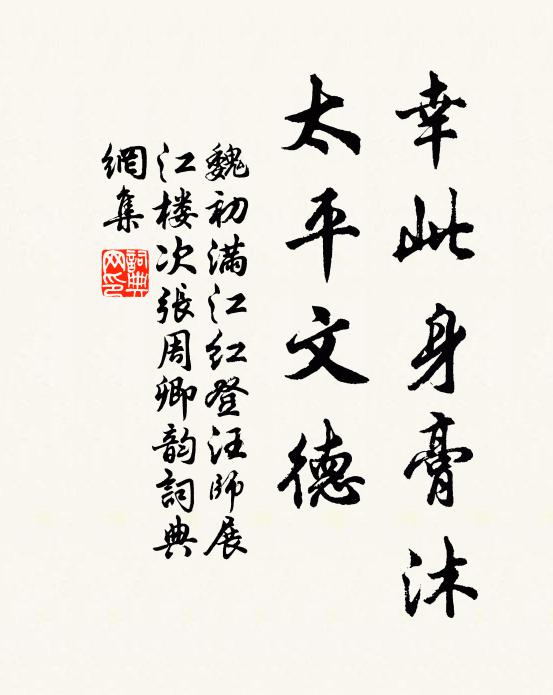 幸此身膏沐
太平文德
魏初满江红登汪师展
江楼次張周卿韵詞典
網集
詞典网印